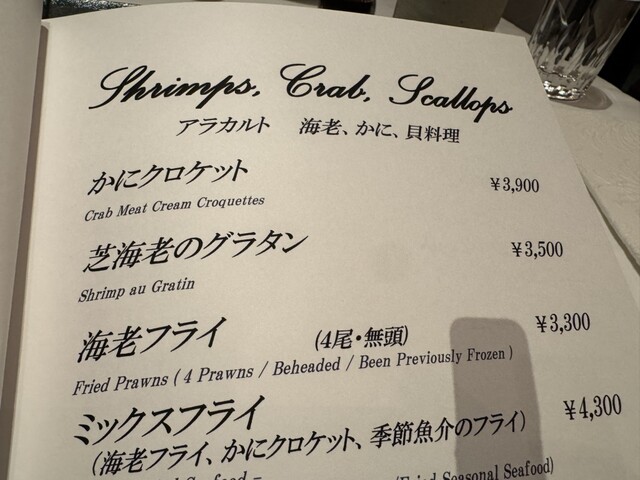 Shrimps, Crab, Scallops
アラカルト 海老、かに、貝料理
かにクロケット ¥3,900
Crab Meat Cream Croquettes
芝海老のグラタン ¥3,500
Shrimp au Gratin
海老フライ (4尾・無頭) ¥3,300
Fried Prawns ( 4 Prawns / Beheaded / Been Previously Frozen )
ミックスフライ ¥4,300
(海老フライ、かにクロケット、季節魚介のフライ)
(Fried Seasonal Seafood)